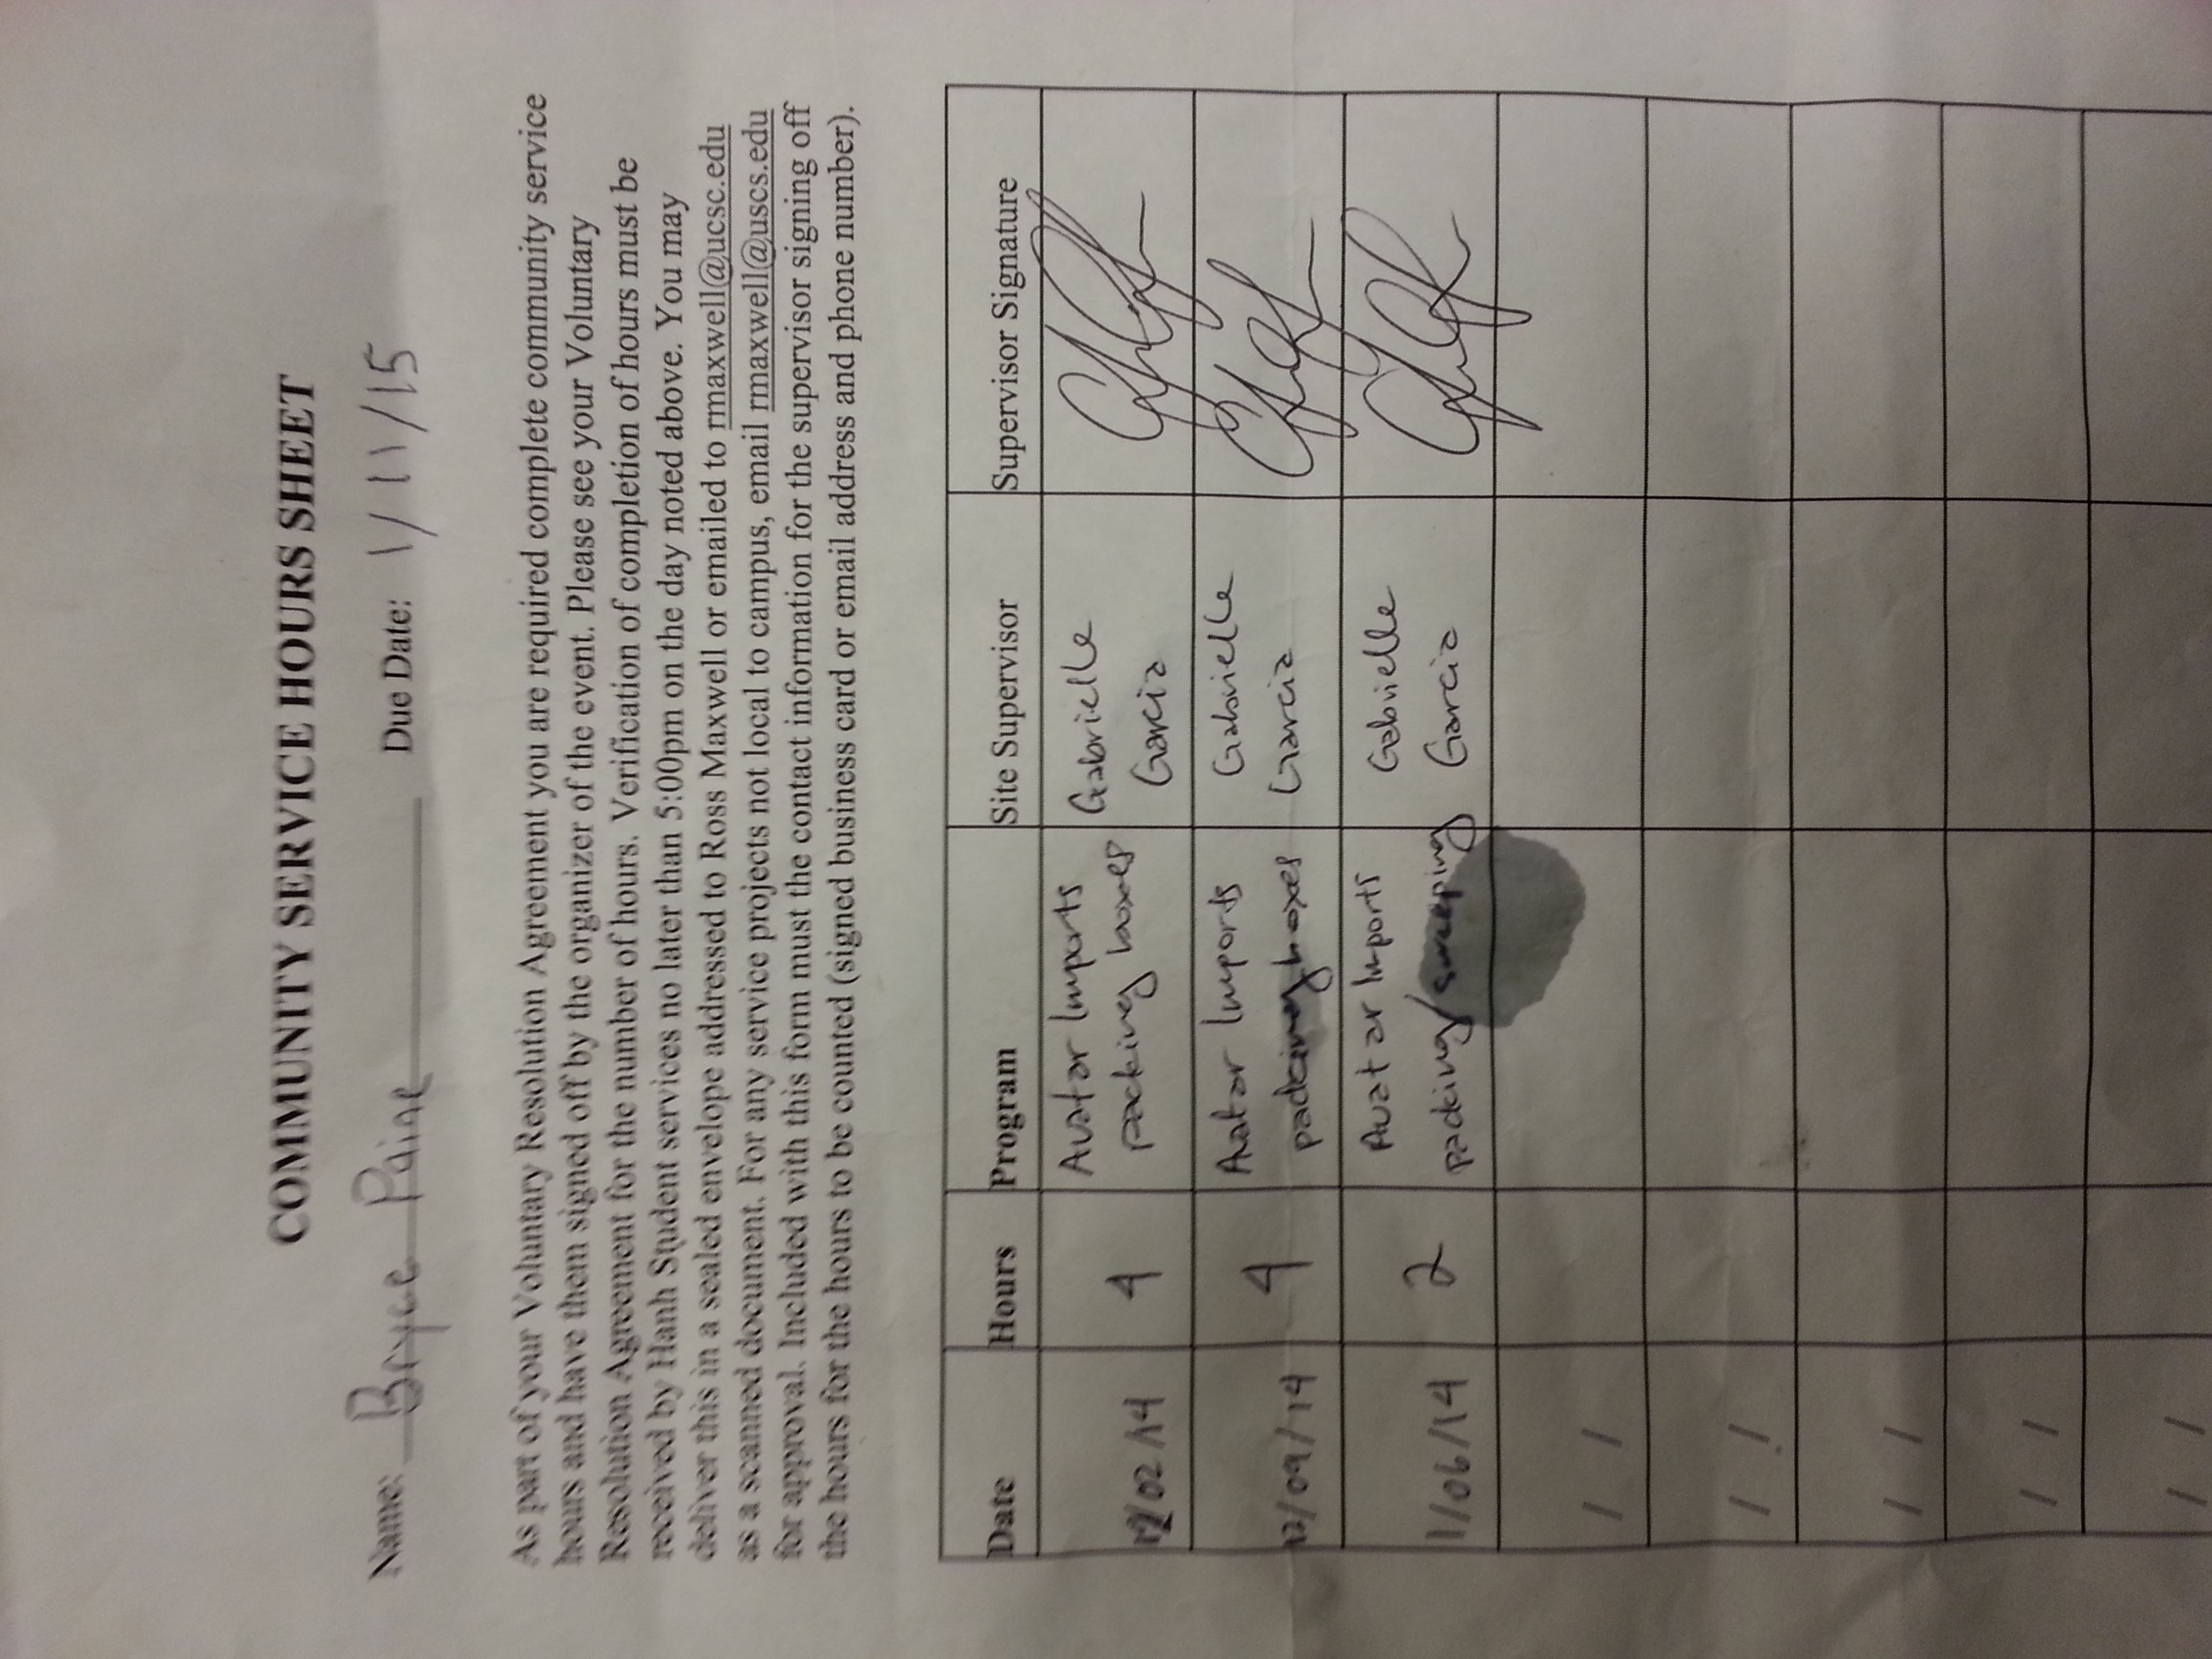 COMMUNITY SERVICE HOURS SHEET
Name: Bryce Paine Due Date: 1/11/15
As part of your Voluntary Resolution Agreement you are required complete community service
hours and have them signed off by the organizer of the event. Please see your Voluntary
Resolution Agreement for the number of hours. Verification of completion of hours must be
received by Hanh Student services no later than 5:00pm on the day noted above. You may
deliver this in a sealed envelope addressed to Ross Maxwell or emailed to rmaxwell@ucsc.edu
as a scanned document. For any service projects not local to campus, email rmaxwell@uscs.edu
for approval. Included with this form must the contact information for the supervisor signing off
the hours for the hours to be counted (signed business card or email address and phone number).
Date Hours Program Site Supervisor Supervisor Signature
Avatar Imports Gabrielle
12/02/14 4 packing boxes Garcia
Avatar Imports Gabrielle
12/09/14 4 packing boxes Garcia
Avatar Imports Gabrielle
1/06/14 2 packing/sweeping Garcia
/ /
/ /
/ /
/ /
/ /